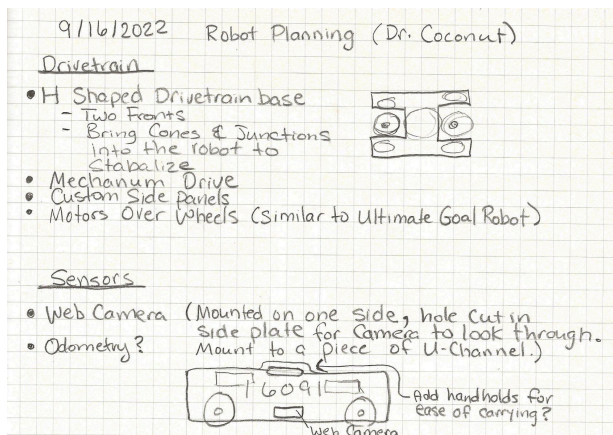 9/16/2022 Robot Planning (Dr. Coconut)
Drivetrain
• H Shaped Drivetrain base
- Two Fronts
- Bring Cones & Junctions
into the robot to
Stabalize
• Mechanum Drive
• Custom Side Panels
• Motors Over Wheels (Similar to Ultimate Goal Robot)
Sensors
• Web Camera (Mounted on one side, hole cut in
side plate for Camera to look through.
• Odometry? Mount to a piece of U-Channel.)
16091
Add handholds for
ease of carrying?
Web Camera